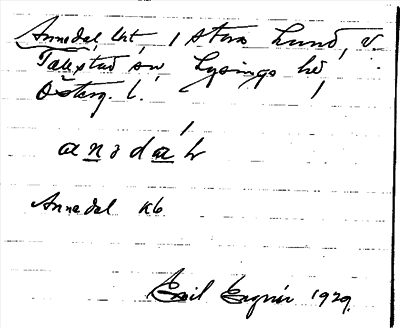 Annedal Lht i Stora Lund, V.
Tollstad sn Lysings hd
Österg. l.
anədɑ̀l
Annedal Kb
Emil 1929.